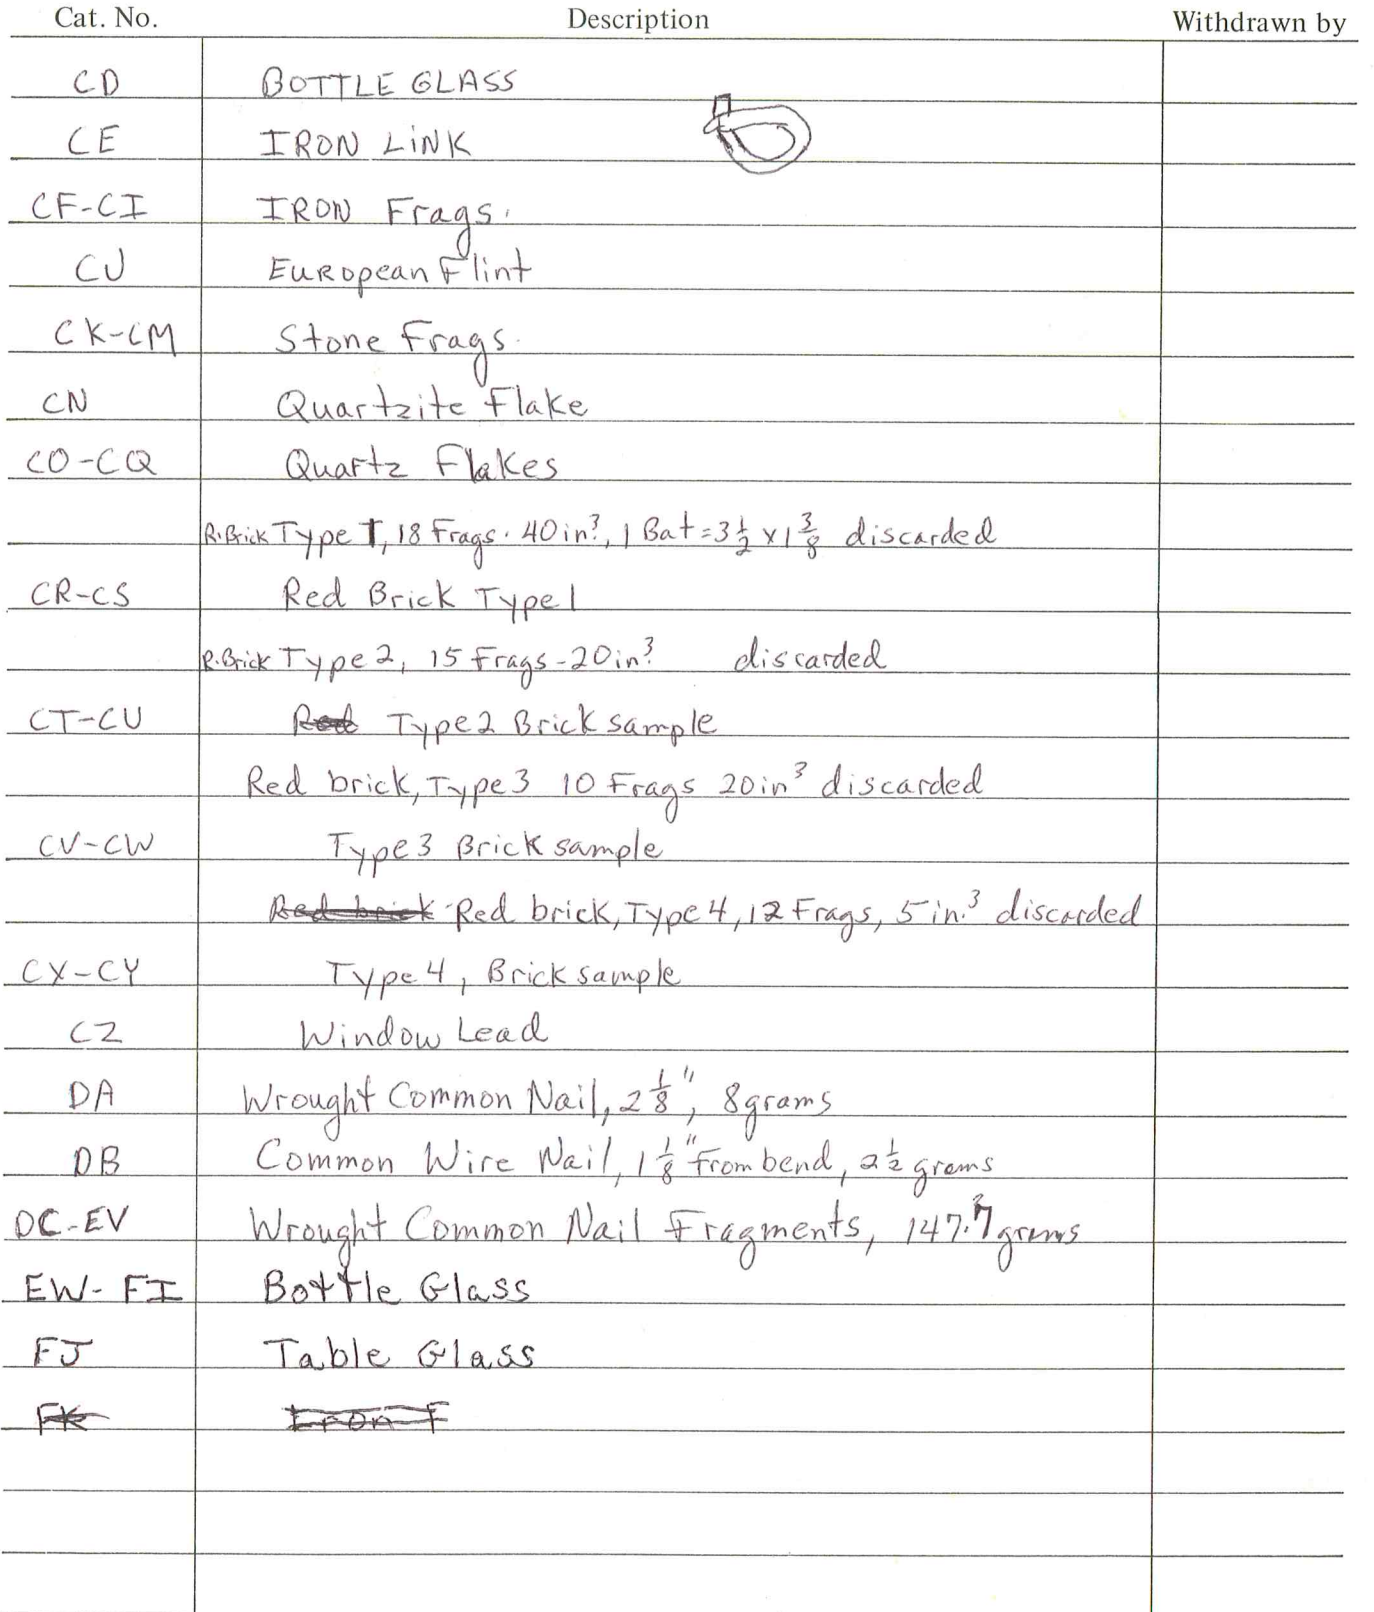 Cat. No. Description Withdrawn by
CD BOTTLE GLASS
CE IRON LINK
CF-CI IRON Frags.
CJ European Flint
CK-CM Stone Frags.
CN Quartzite Flake
CO-CQ Quartz Flakes
R.Brick Type 1, 18 Frags. 40 in³, 1 Bat = 3 1/2 x 1 3/8 discarded
CR-CS Red Brick Type 1
R.Brick Type 2, 15 Frags - 20 in³ discarded
CT-CU Red Type 2 Brick sample
Red brick, Type 3 10 Frags 20 in³ discarded
CV-CW Type 3 Brick sample
Red brick Red brick, Type 4, 12 Frags, 5 in.³ discarded
CX-CY Type 4, Brick sample
CZ Window Lead
DA Wrought Common Nail, 2 1/8", 8 grams
DB Common Wire Nail, 1 1/8" from bend, 2 1/2 grams
DC-EV Wrought Common Nail Fragments, grams
EW-FI Bottle Glass
FJ Table Glass
FK Iron F